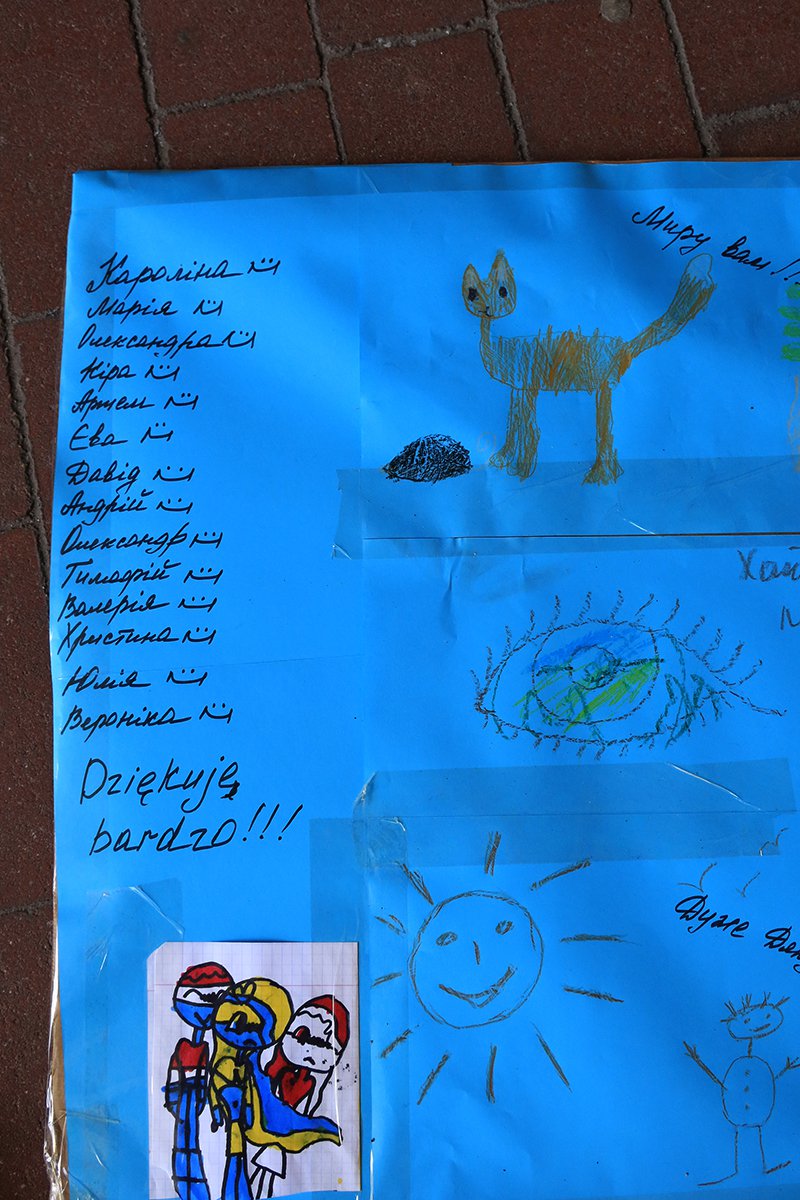 Кароліна
Марія
Олександра
Кіра
Артем
Єва
Давід
Андрій
Олександр
Тимофій
Валерія
Христина
Юлія
Вероніка
Dziękuję
bardzo!!!
Миру вам!!
Хай
Дуже Дяку